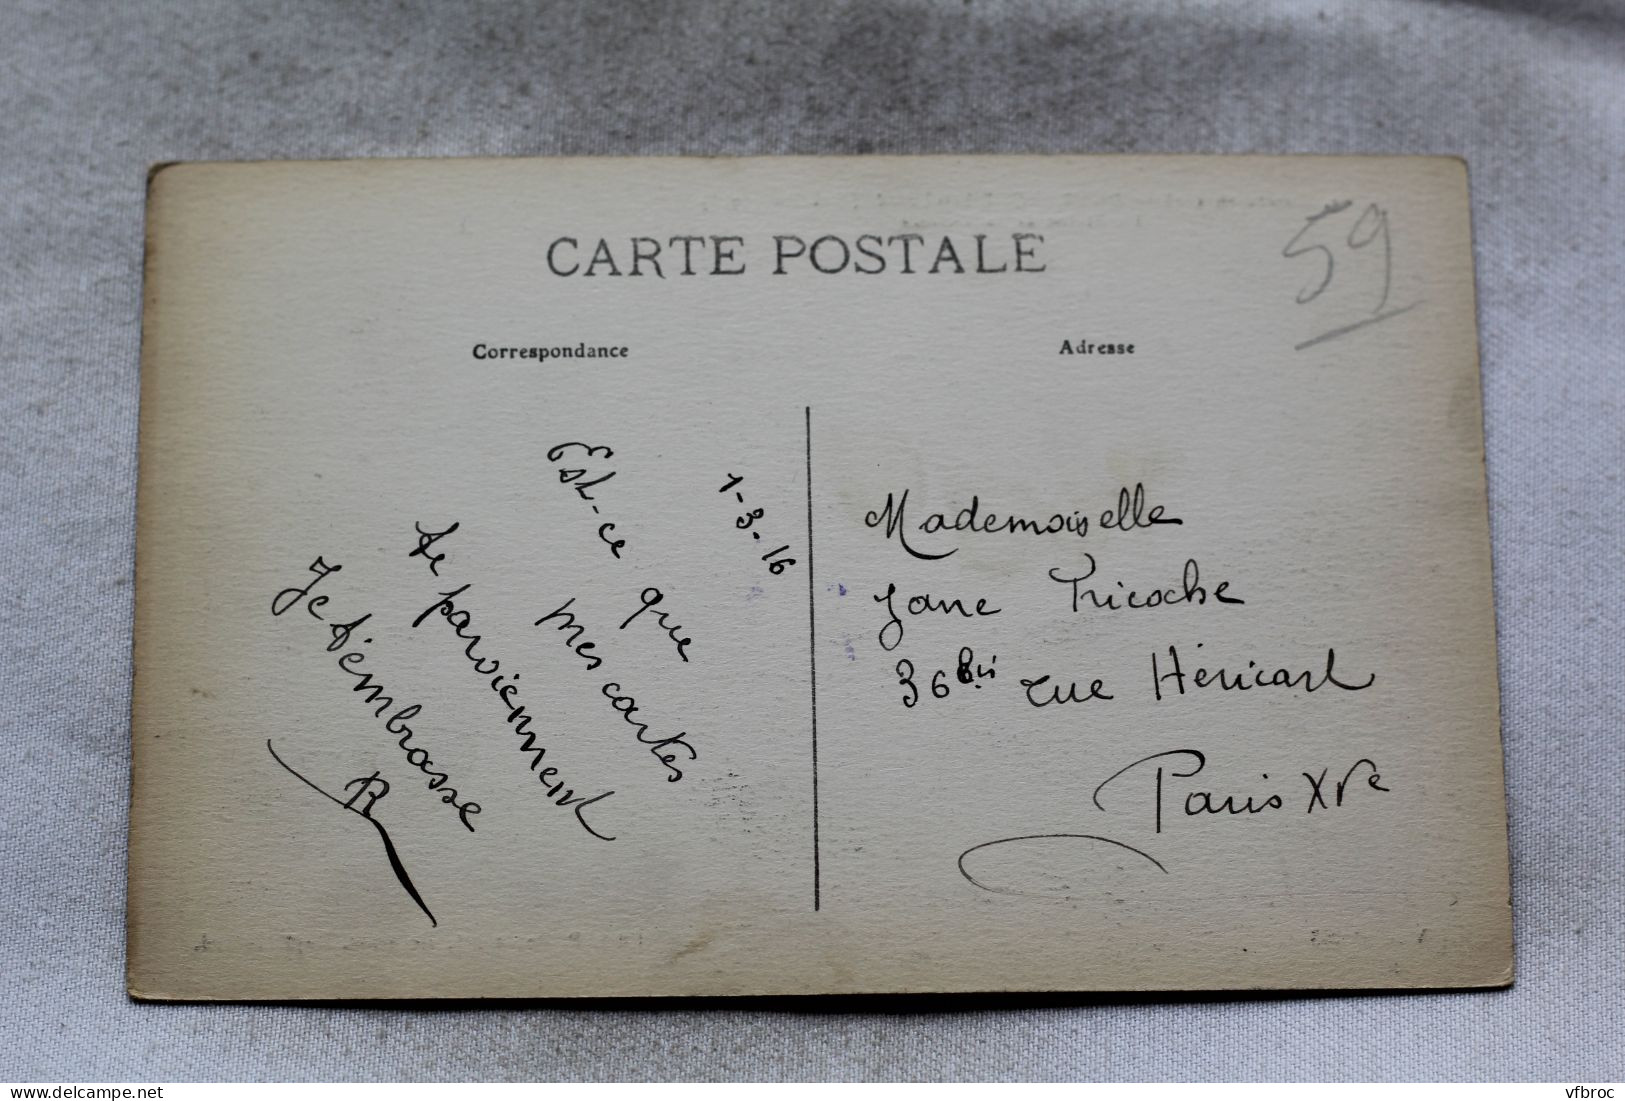 CARTE POSTALE
59
Correspondance
Adresse
1-3-16
Est-ce que
mes cartes
te parviennent
Je t'embrasse
R
Mademoiselle
Jane Tricoche
36 bis rue Héricart
Paris XVe
www.delcampe.net
vfbroc